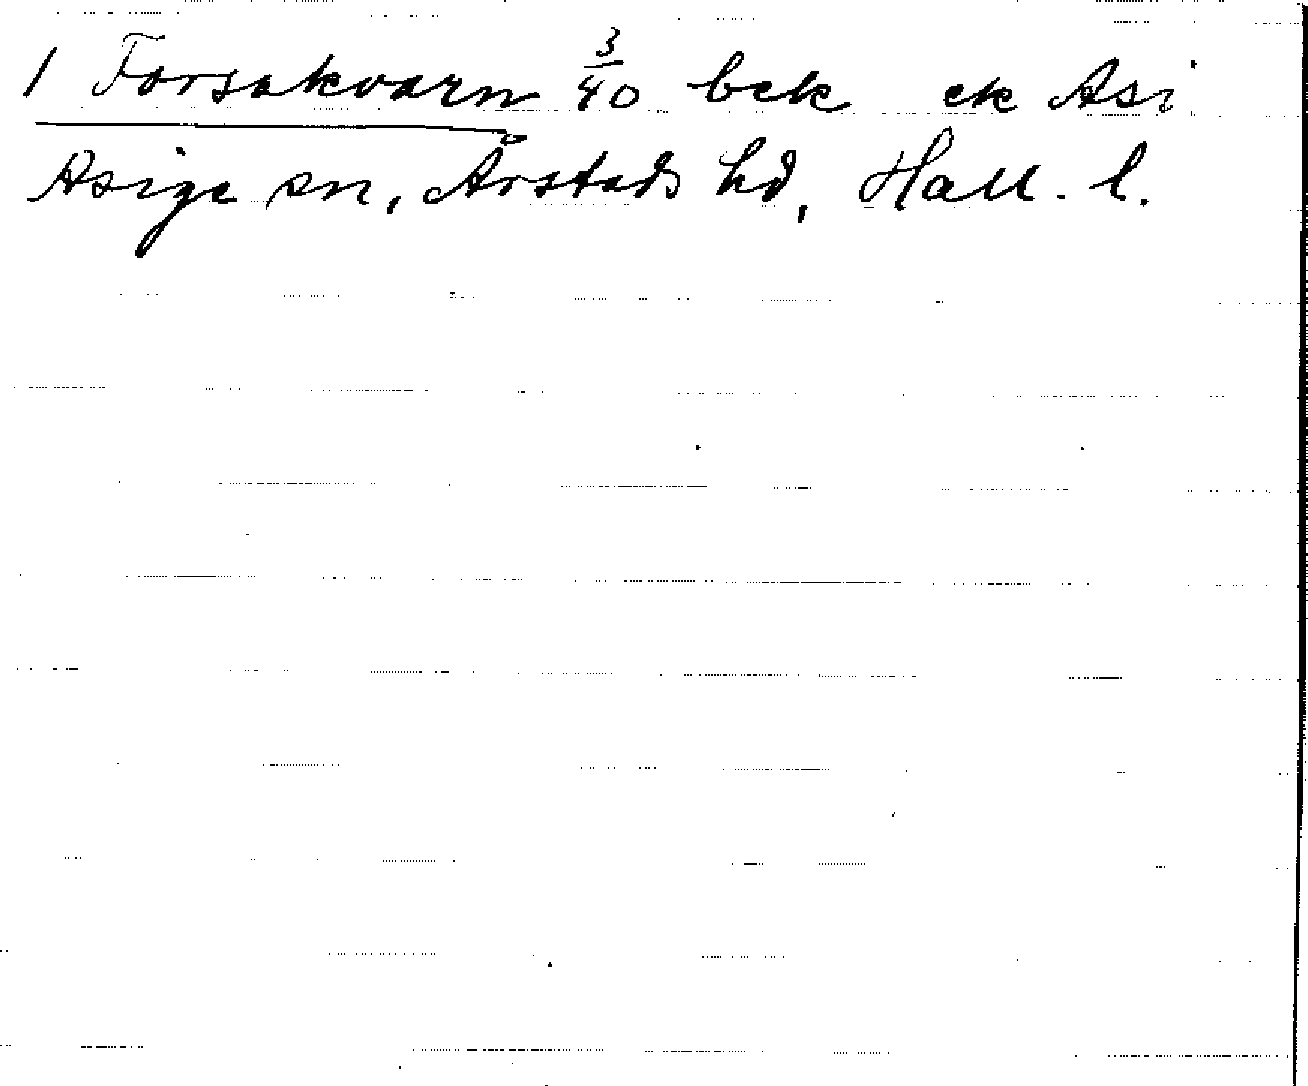 1 Forsakvarn 3/40 bek ek Asi
Asige sn, Årstads hd, Hall. l.